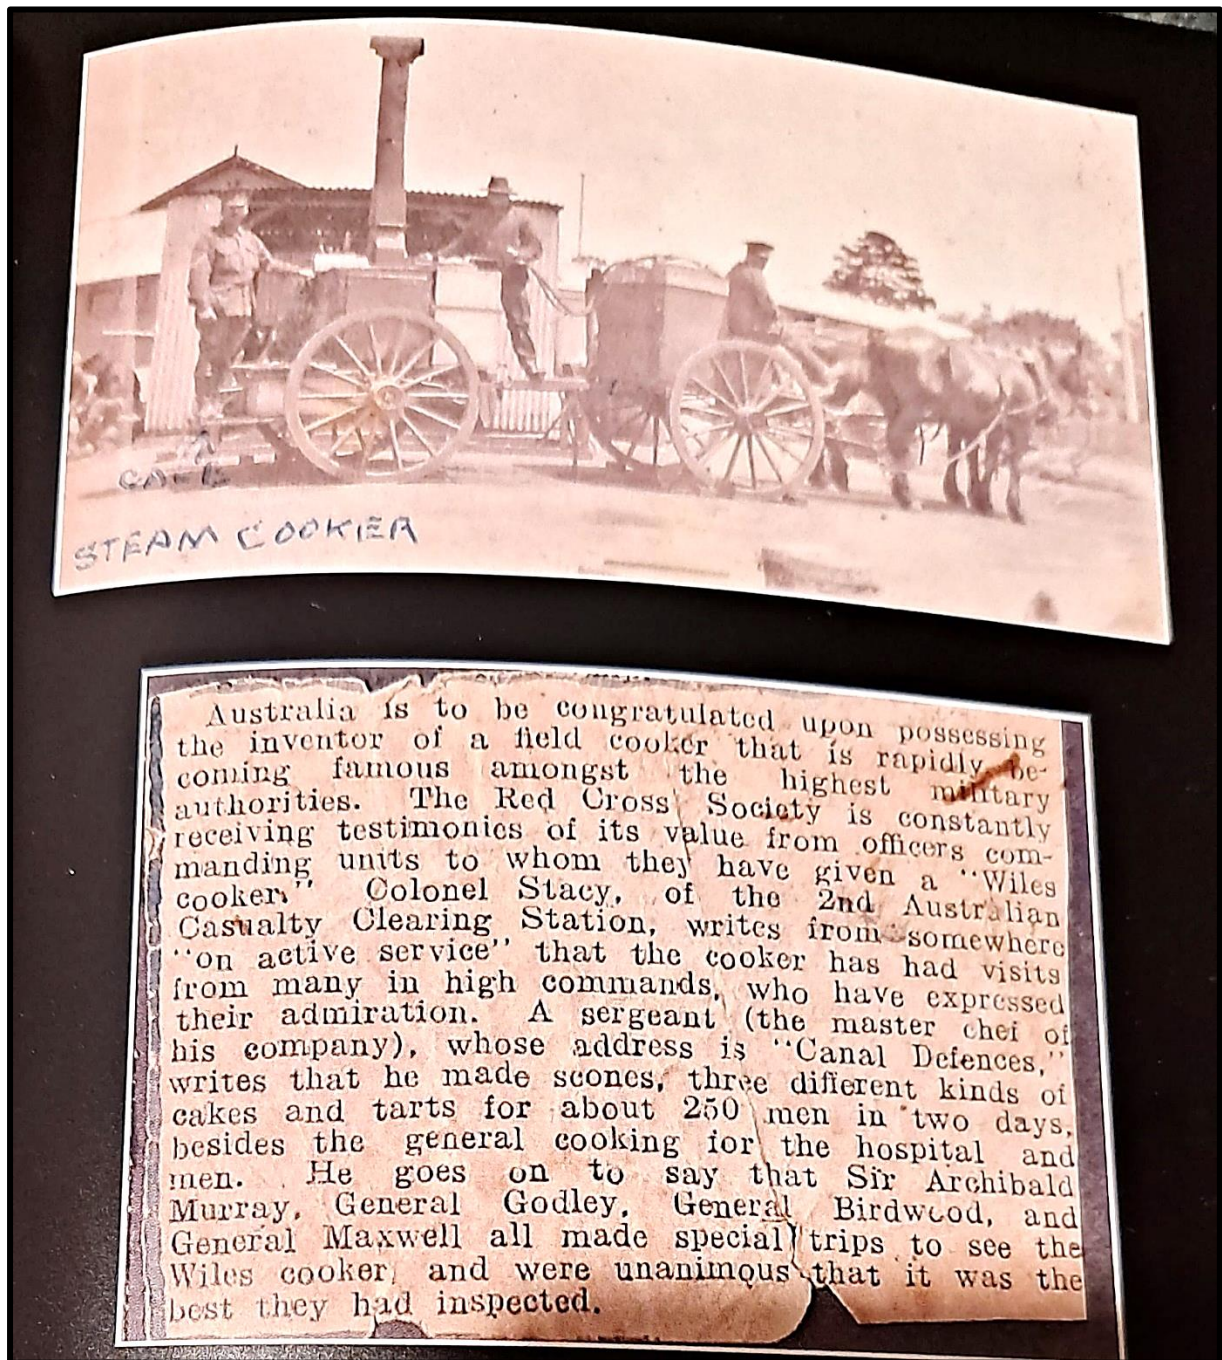 STEAM COOKER
Australia is to be congratulated upon possessing
the inventor of a field cooker that is rapidly be-
coming famous amongst the highest military
authorities. The Red Cross Society is constantly
receiving testimonies of its value from officers com-
manding units to whom they have given a "Wiles
cooker." Colonel Stacy, of the 2nd Australian
Casualty Clearing Station, writes from somewhere
"on active service" that the cooker has had visits
from many in high commands, who have expressed
their admiration. A sergeant (the master chef of
his company), whose address is "Canal Defences,"
writes that he made scones, three different kinds of
cakes and tarts for about 250 men in two days,
besides the general cooking for the hospital and
men. He goes on to say that Sir Archibald
Murray, General Godley, General Birdwood, and
General Maxwell all made special trips to see the
Wiles cooker, and were unanimous that it was the
best they had inspected.